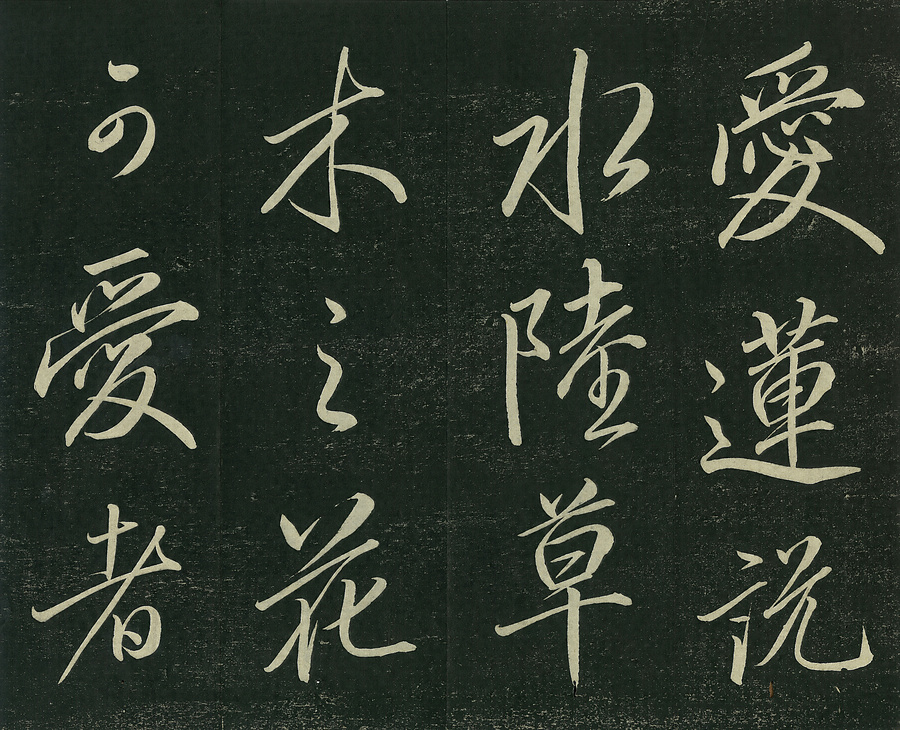 愛蓮說
水陸草
木之花
可愛者